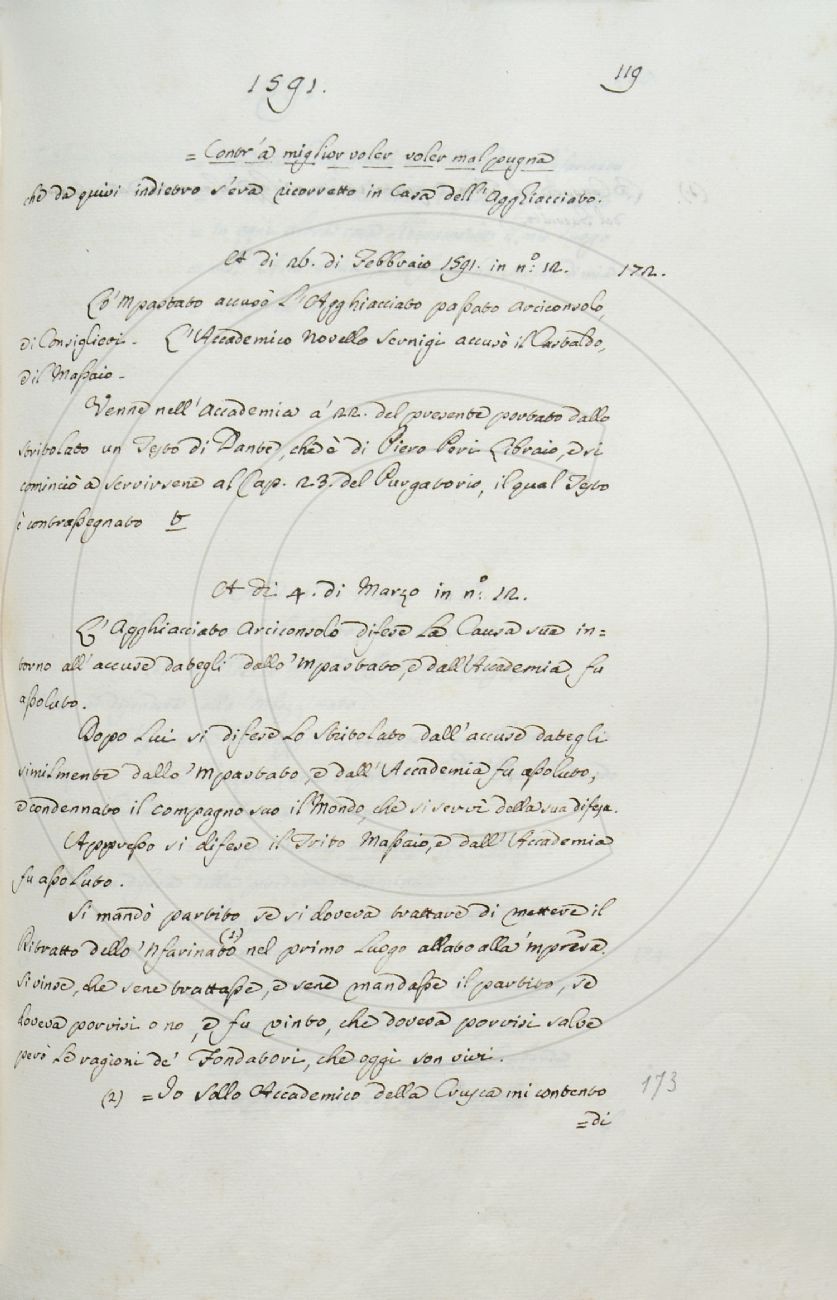 1591.
119
= Contr'a miglior voler voler mal pugna
che da quivi indietro s'era ricorretto in Casa dell'Agghiacciato.
A dì 26. di Febbraio 1591. in n.º 12.
172.
Lo 'Mpastato accusò L'Agghiacciato passato Arciconsolo,
di Consiglieri. L'Accademico Novello Sernigi accusò il Castaldo,
d'il Massaio.
Venne nell'Accademia a' 22. del presente portato dallo
stritolato un Testo di Dante, che è di Piero Peri Libraio, e si
cominciò a servirsene al Cap. 23. del Purgatorio, il qual Testo
è contrassegnato
A dì 4. di Marzo in n.º 12.
L'Agghiacciato Arciconsolo difese La Causa sua in=
torno all'accuse dategli dallo 'Mpastato, e dall'Accademia fu
assoluto.
Dopo Lui si difese Lo Stritolato dall'accuse dategli
similmente dallo 'Mpastato, e dall'Accademia fu assoluto,
e condennato il compagno suo il Mondo, che si servì della sua difesa.
Appresso si difese il Trito Massaio, e dall'Accademia
fu assoluto.
Si mandò partito se si doveva trattare di mettere il
Ritratto dello 'Nfarinato (1) nel primo Luogo allato alla 'mpresa.
Si vinse, che sene trattasse, e sene mandasse il partito, se
doveva porvisi o no, e fu vinto, che doveva porvisi salve
però Le ragioni de' Fondatori, che oggi son vivi.
(2) = Io Sollo Accademico della Crusca mi contento
173
= di